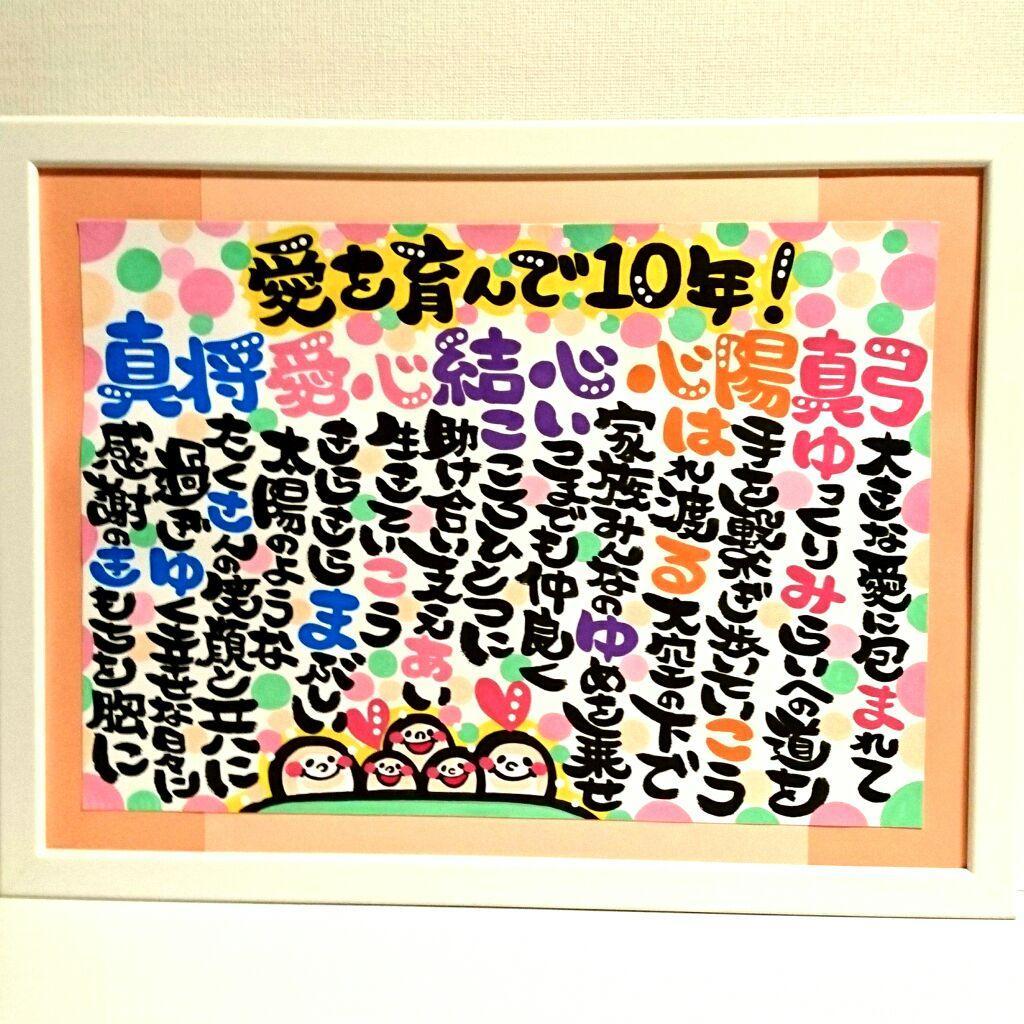 愛を育んで10年!
真将 愛心 結心 心陽 真弓
大きな愛に包まれて
ゆっくりみらいへの道を
手を繋ぎ歩いていこう
はれ渡る大空の下で
家族みんなのゆめを乗せ
いつまでも仲良く
こころひとつに
助け合い支えあい
生きていこう
きらきらまぶしい
太陽のような
たくさんの笑顔と共に
過ぎゆく幸せな日々に
感謝のきもちを胸に